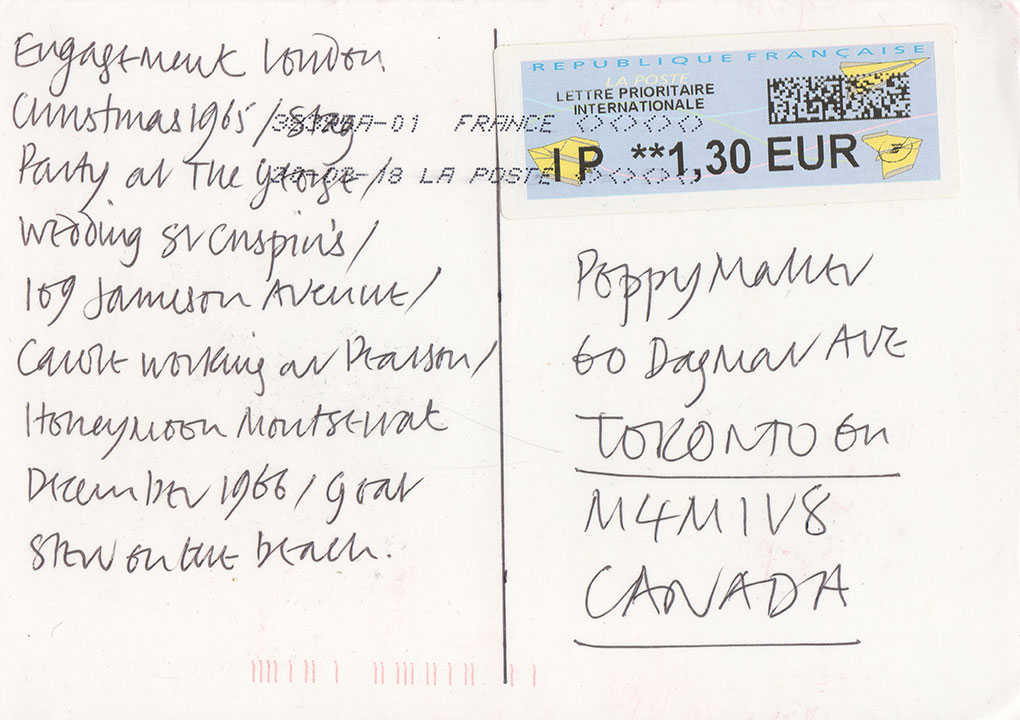 Engagement London
Christmas 1965 / Stag
Party at The George /
Wedding St Crispin's /
109 Jameson Avenue /
Carole working at Pearson /
Honeymoon Montserrat
December 1966 / Goat
Stew on the beach.
REPUBLIQUE FRANÇAISE
LA POSTE
LETTRE PRIORITAIRE
INTERNATIONALE
IP **1,30 EUR
-01 FRANCE
-18 LA POSTE
Poppy
60 Dagmar AVE
TORONTO On
M4M 1V8
CANADA